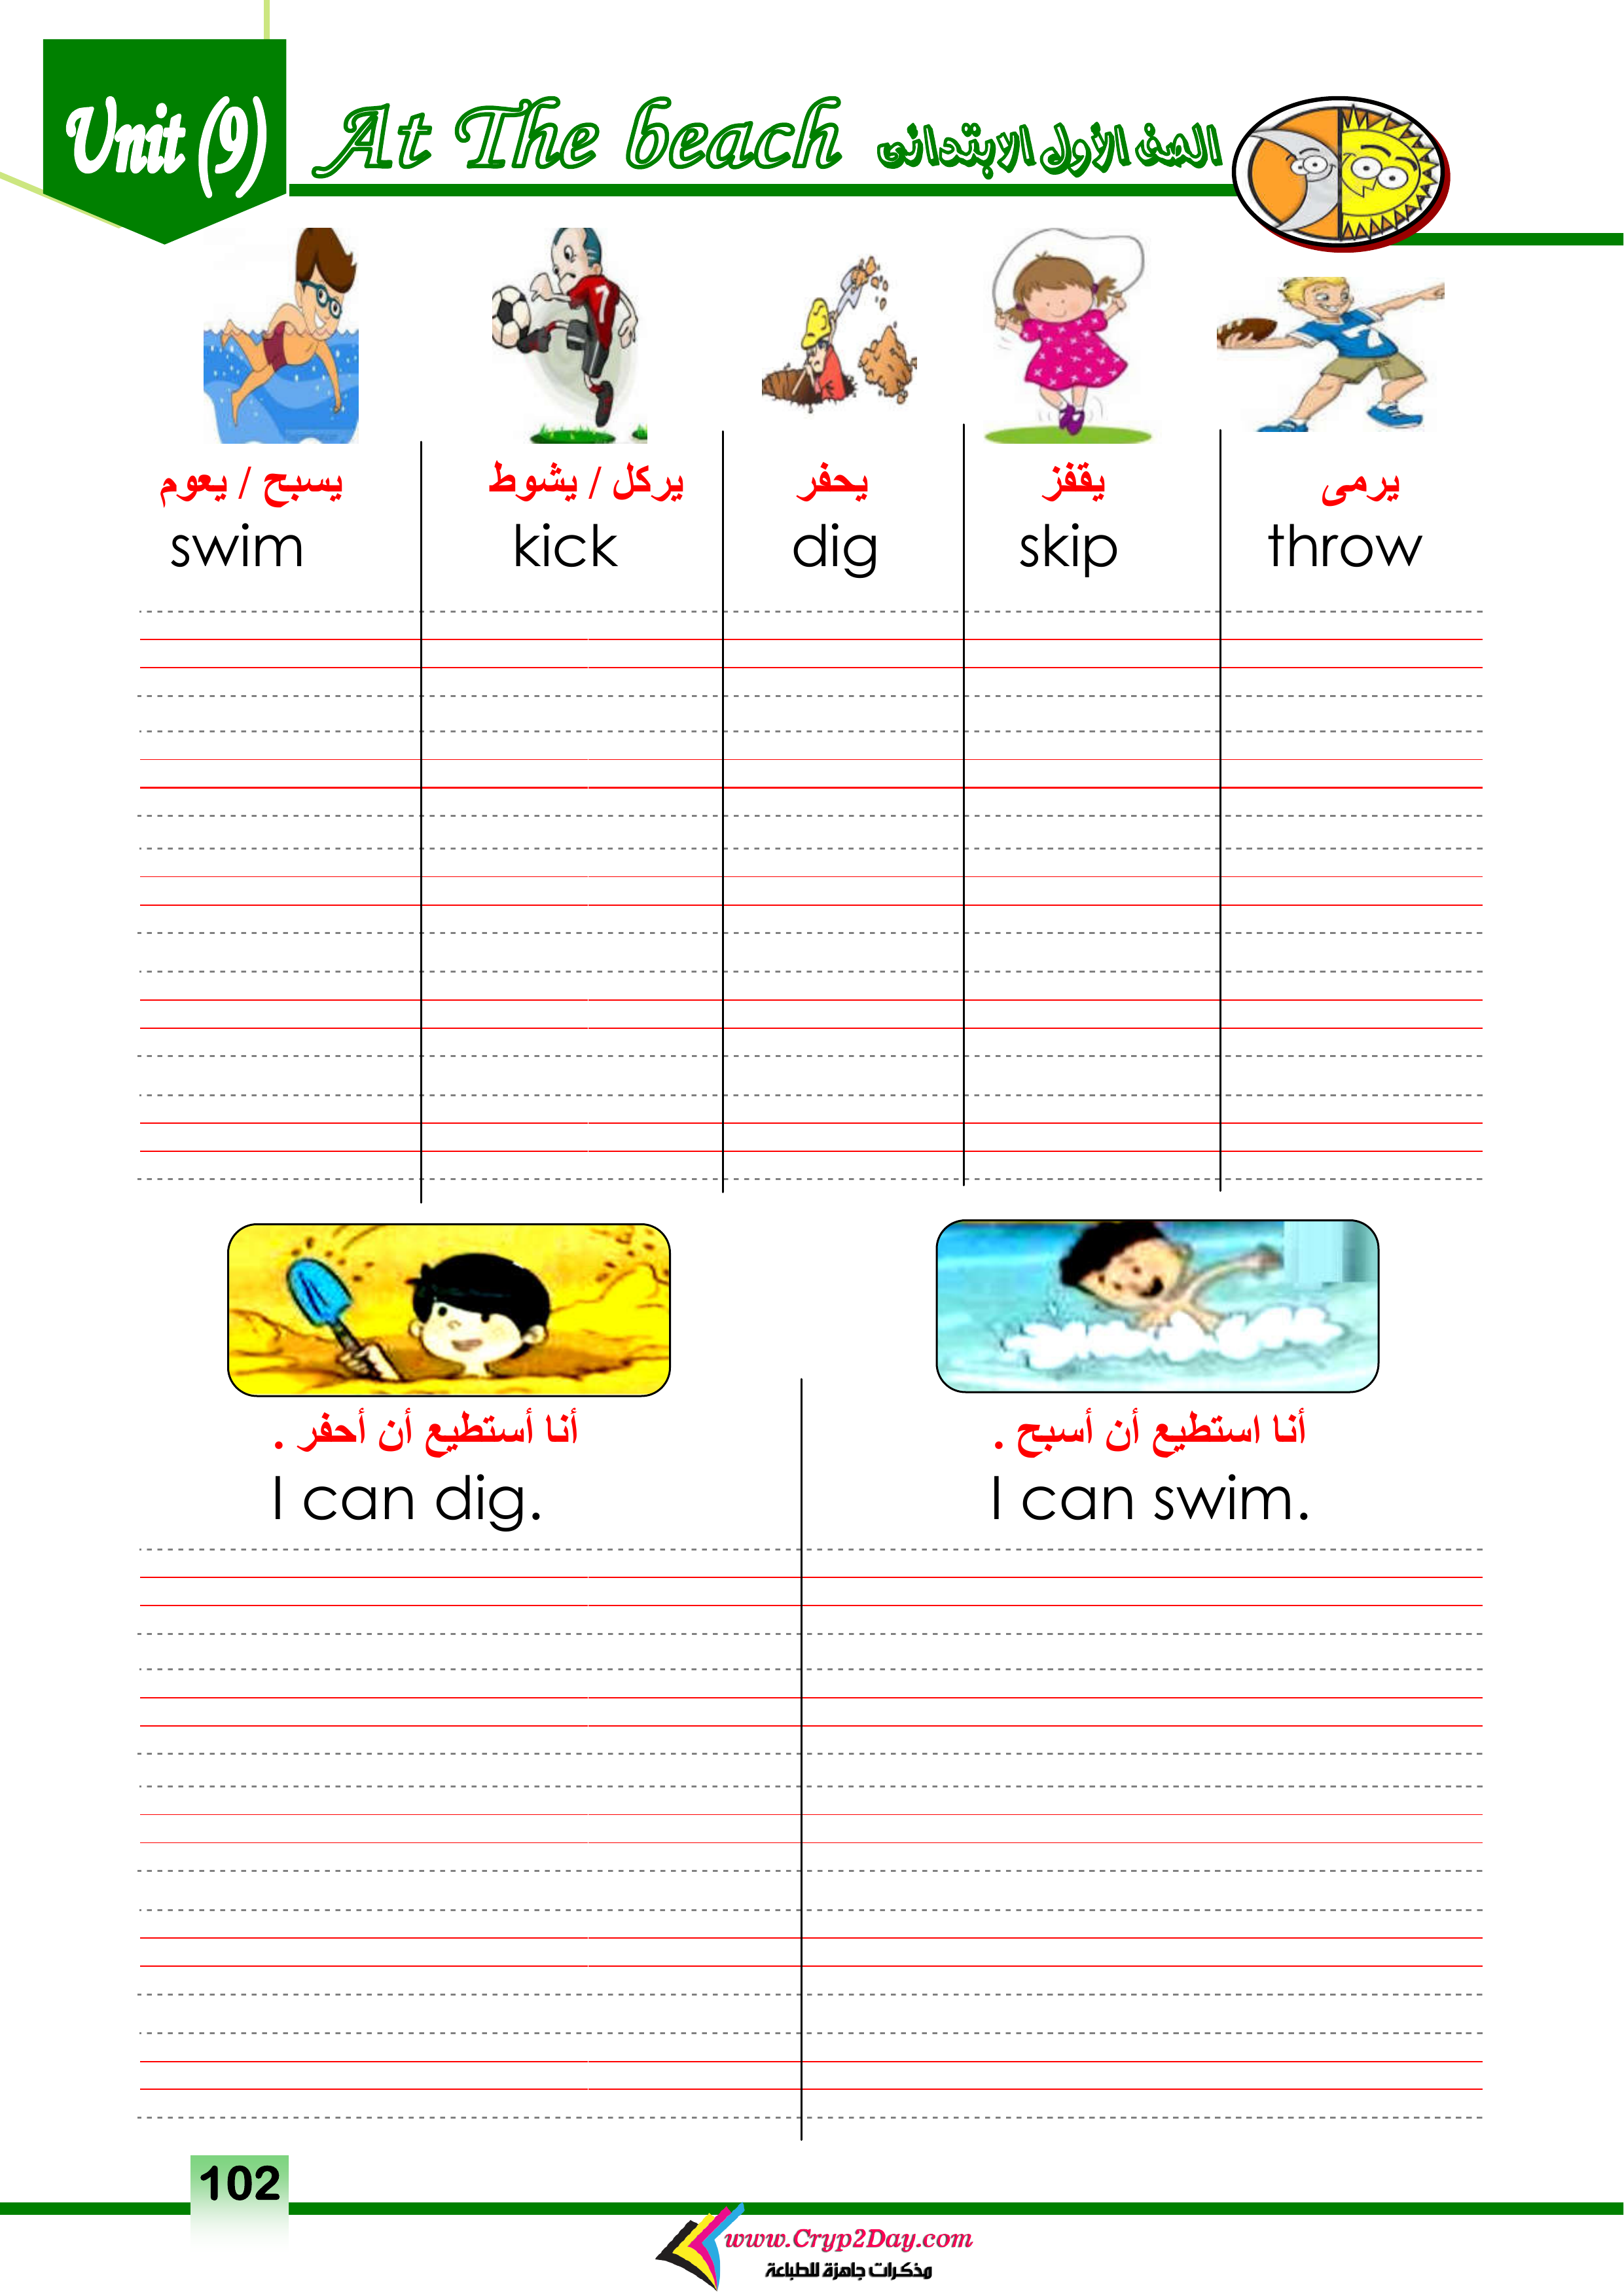 Unit (9)
At The beach الصف الأول الابتدائى
يسبح / يعوم
يركل / يشوط
يحفر
يقفز
يرمى
swim
kick
dig
skip
throw
أنا أستطيع أن أحفر .
أنا استطيع أن أسبح .
I can dig.
I can swim.
102
www.Cryp2Day.com
مذكرات جاهزة للطباعة